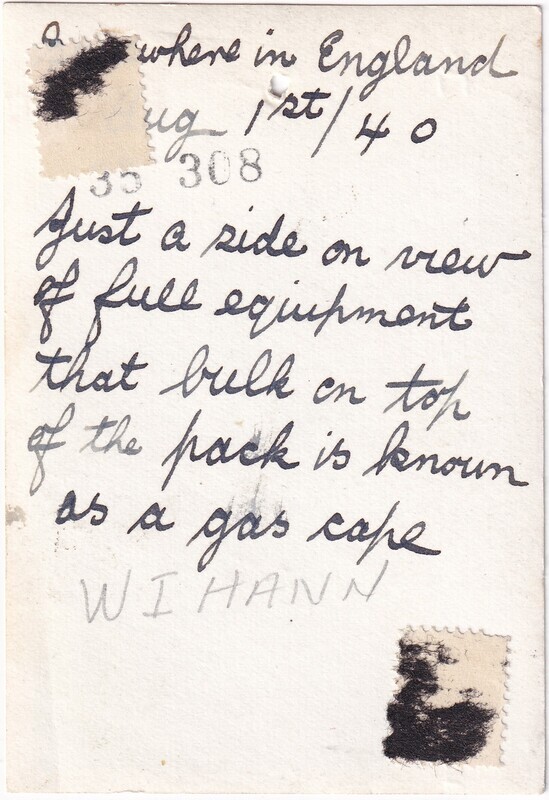 where in England
ug 1st/40
35 308
Just a side on view
of full equipment
that bulk on top
of the pack is known
as a gas cape
W I HANN